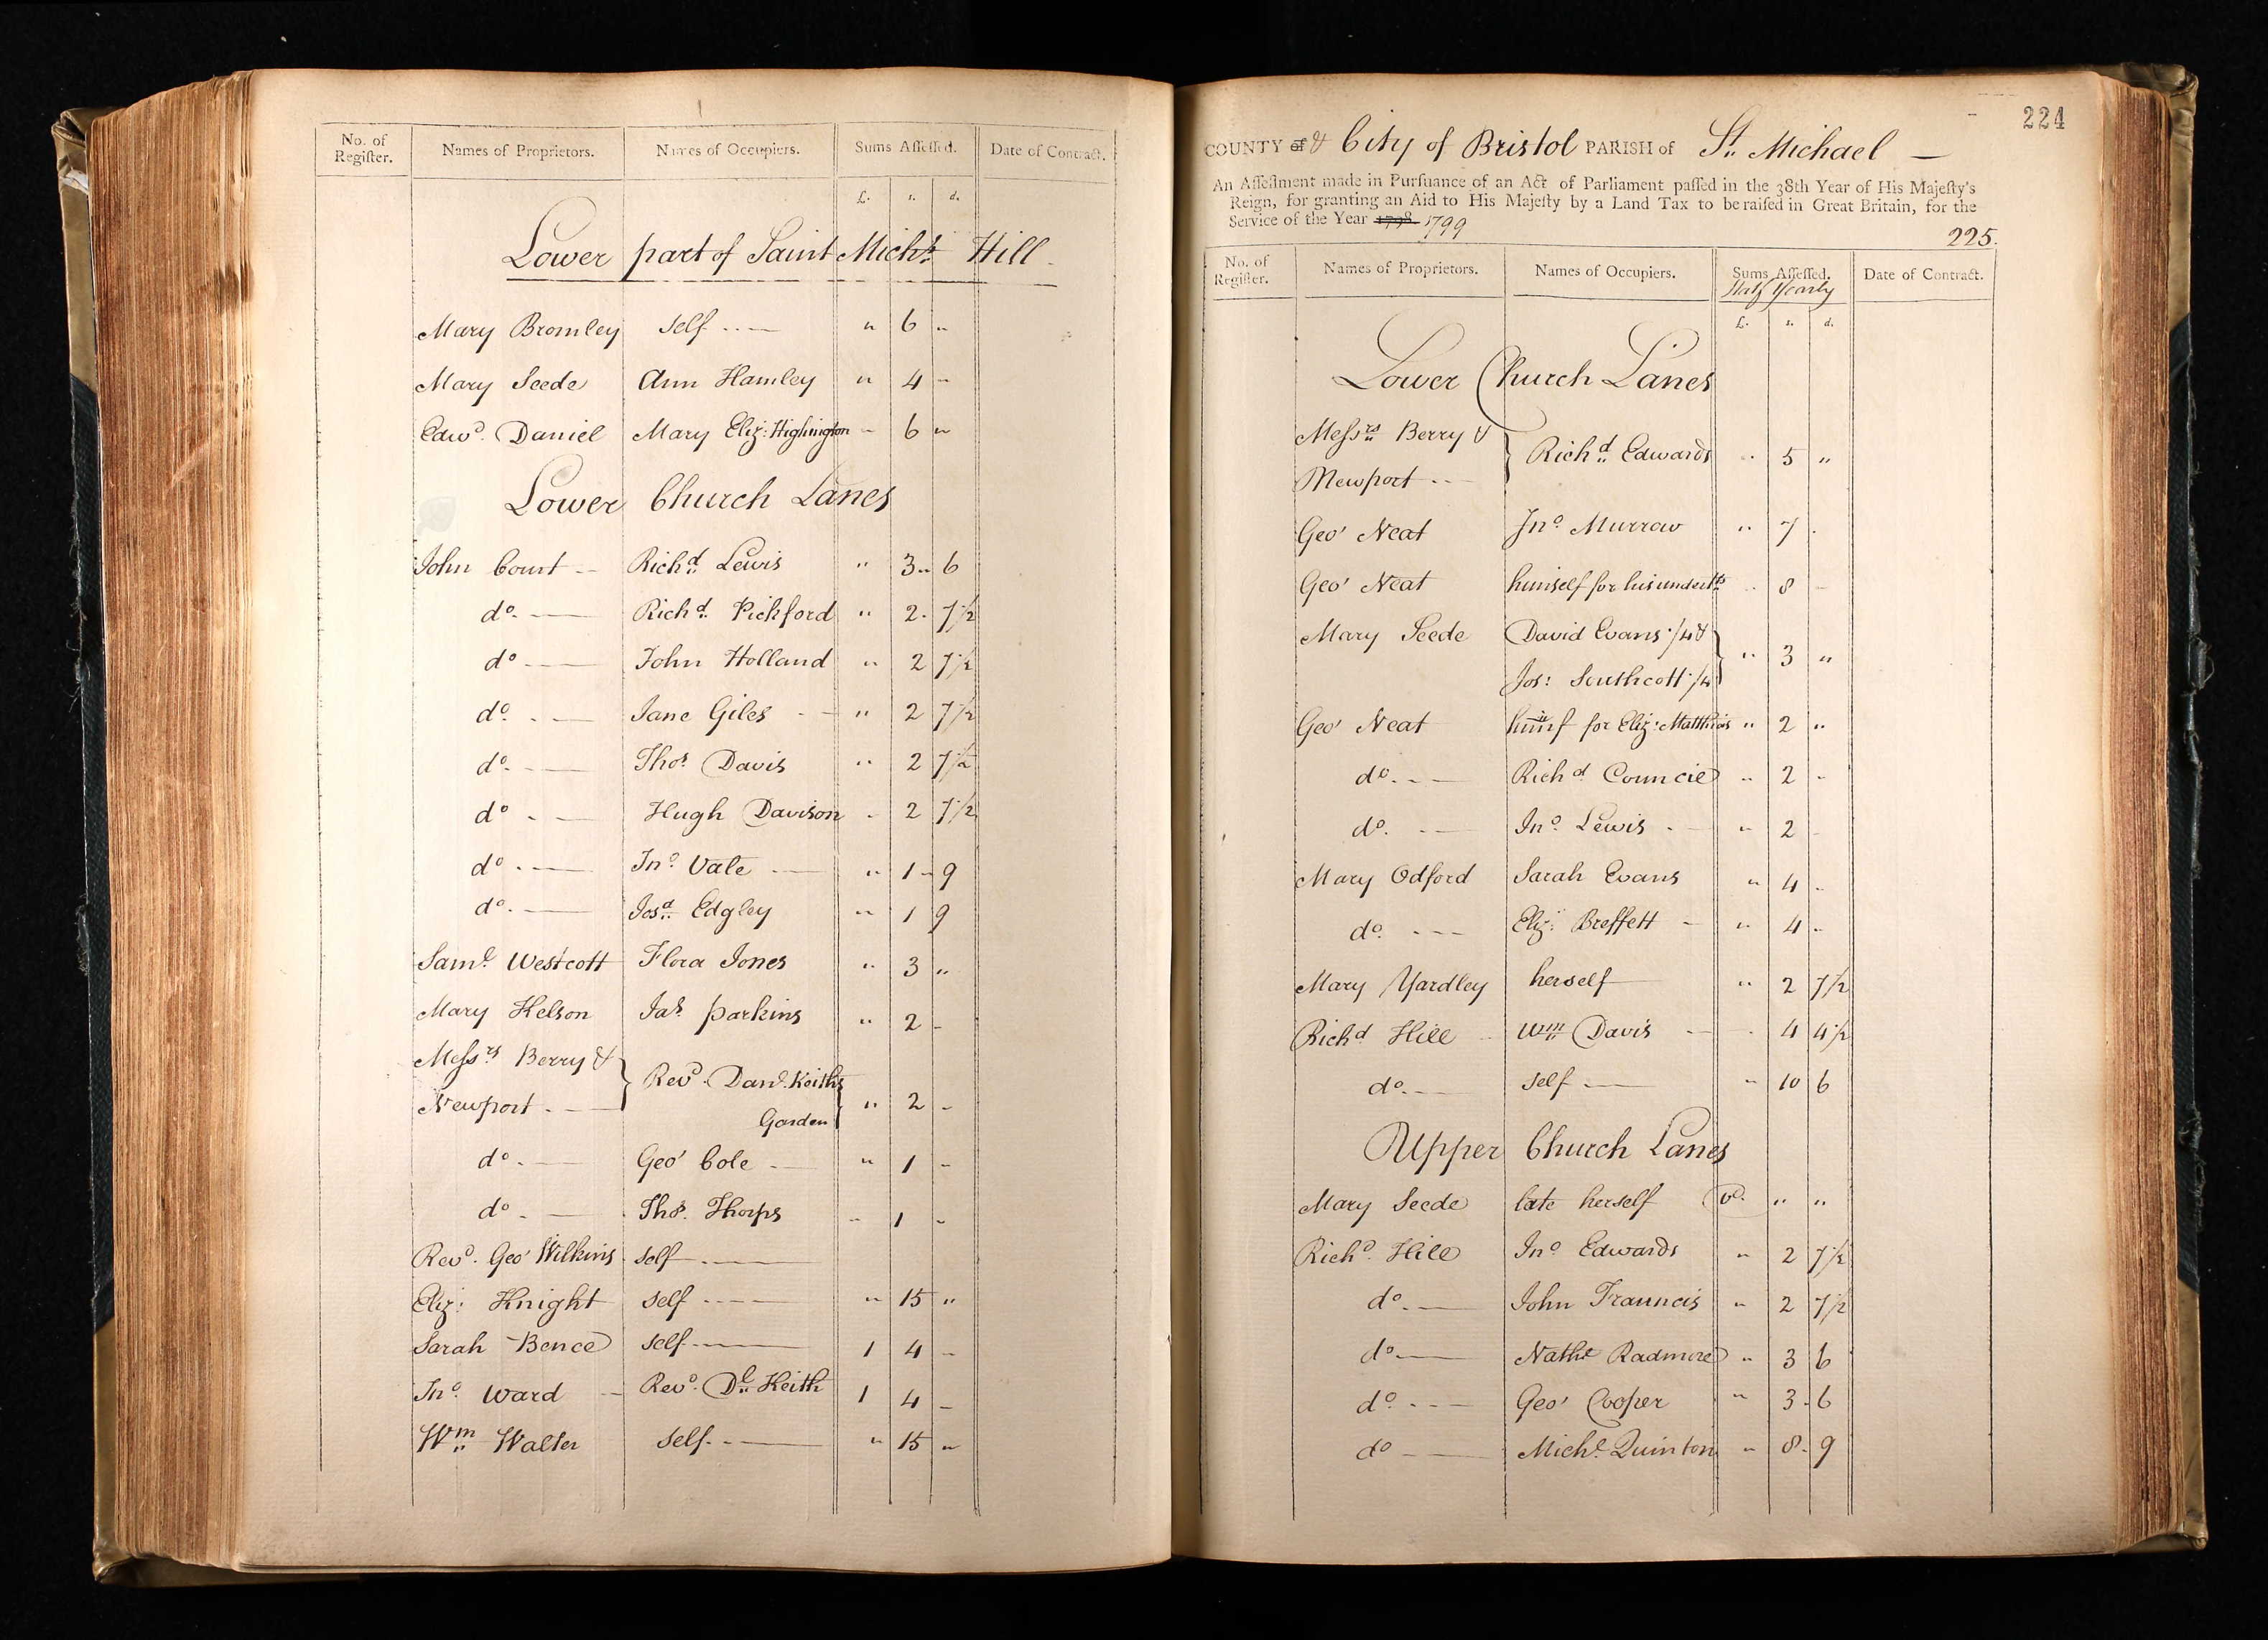 No. of Regiſter. Names of Proprietors. Names of Occupiers. Sums Aſſeſſed. Date of Contract.
£. s. d.
Lower part of Saint Michs. Hill
Mary Bromley self " 6 "
Mary Seede Ann Hamley " 4 "
Edwd. Daniel Mary Eliz: Highington " 6 "
Lower Church Lanes
John Court Richd. Lewis " 3 " 6
do. Richd. Pickford " 2 7 1/2
do John Holland " 2 7 1/2
do. Jane Giles " 2 7 1/2
do. Thos Davis " 2 7 1/2
do Hugh Davison " 2 7 1/2
do Jno. Vate " 1 9
do. Josa. Edgley " 1 9
Saml. Westcott Flora Jones " 3 "
Mary Helson Jas. Parkins " 2 -
Messrs Berry &
Newport Revd. Danl. Keiths
Garden " 2 -
do. Geo' Cole " 1 -
do Thos. Thorps " 1 -
Revd. Geo' Wilkins self
Eliz: Knight self " 15 "
Sarah Bence self 1 4 -
Jno. Ward Revd. Dl. Keith 1 4 -
Wm. Walter self " 15 "
224
COUNTY of & City of Bristol PARISH of St. Michael —
An Aſſeſſment made in Purſuance of an Act of Parliament paſſed in the 38th Year of His Majeſty's
Reign, for granting an Aid to His Majeſty by a Land Tax to be raiſed in Great Britain, for the
Service of the Year 1798 1799
225.
No. of Regiſter. Names of Proprietors. Names of Occupiers. Sums Aſſeſſed. Date of Contract.
Half Yearly
£. s. d.
Lower Church Lanes
Messrs Berry &
Newport Richd. Edwards " 5 "
Geo' Neat Jno. Murrow " 7 .
Geo' Neat himself for his undertts " 8 -
Mary Seede David Evans /4 &
Jos: Southcott /4 " 3 "
Geo' Neat himsf for Eliz: Matthias " 2 "
do. Richd Councie " 2 -
do. Jno. Lewis " 2 -
Mary Odford Sarah Evans " 4 -
do. Eliz: Breffett " 4 -
Mary Yardley herself " 2 7 1/2
Richd Hill Wm. Davis " 4 4 1/2
do. self " 10 6
Upper Church Lanes
Mary Seede late herself vd. " "
Richd. Hill Jno. Edwards " 2 7 1/2
do. John Frauncis " 2 7 1/2
do Nathl Radmore " 3 6
do. Geo' Cooper " 3 6
do Michl. Quinton " 8 9